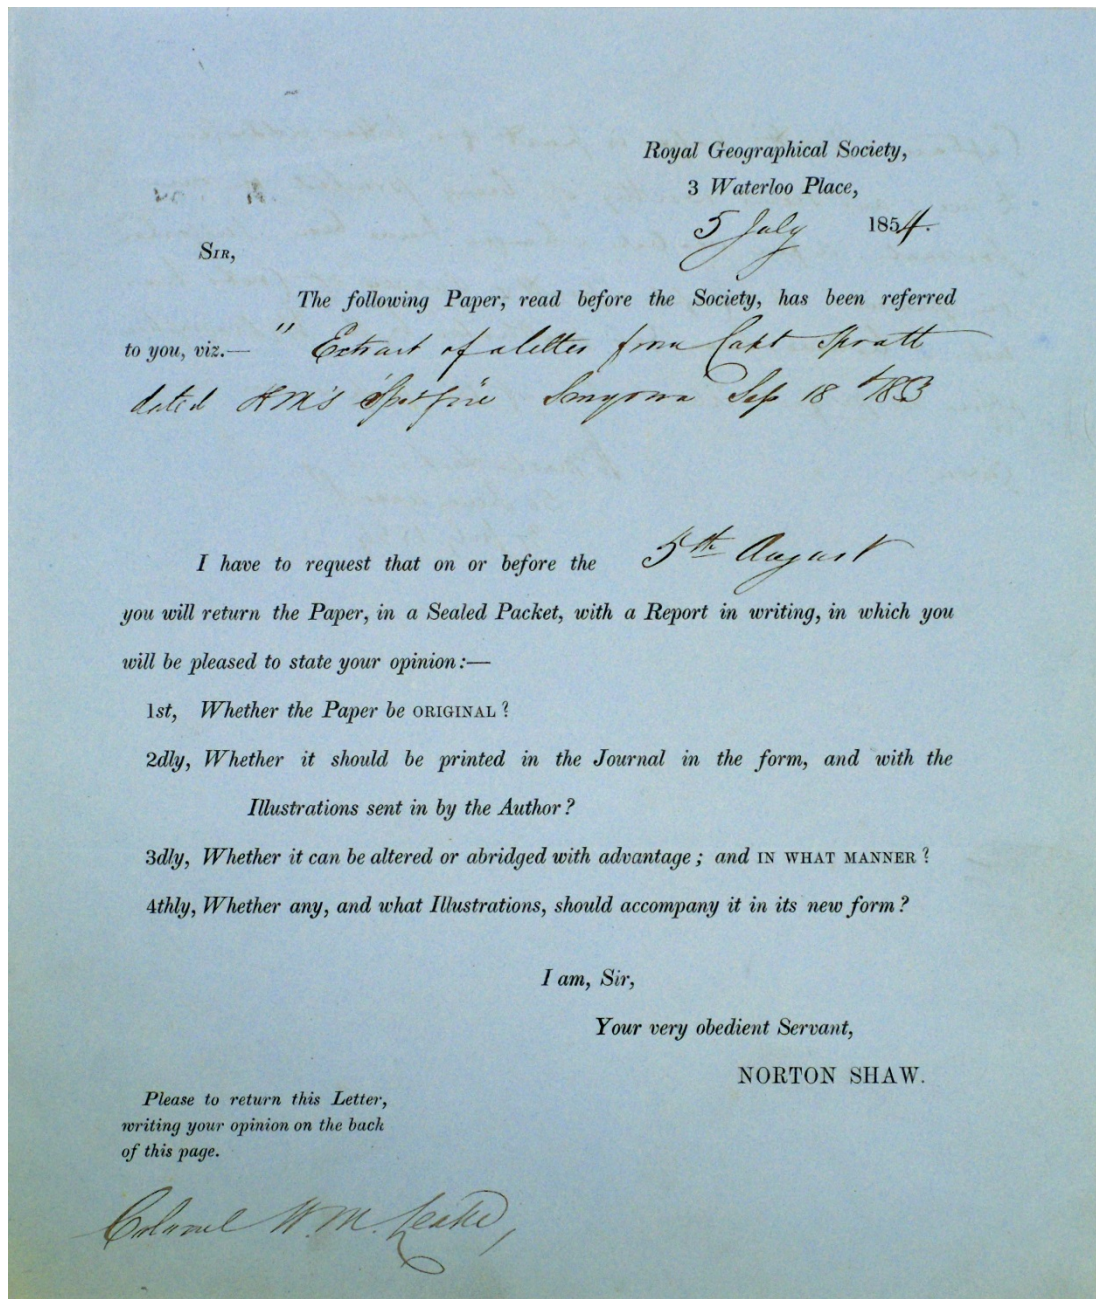 Royal Geographical Society,
3 Waterloo Place,
5 July 1854.
SIR,
The following Paper, read before the Society, has been referred
to you, viz.— " Extract of a letter from Capt Spratt
dated HM's 'Spitfire' Smyrna Sep 18 1853
I have to request that on or before the 5th August
you will return the Paper, in a Sealed Packet, with a Report in writing, in which you
will be pleased to state your opinion:—
1st, Whether the Paper be ORIGINAL?
2dly, Whether it should be printed in the Journal in the form, and with the
Illustrations sent in by the Author?
3dly, Whether it can be altered or abridged with advantage; and IN WHAT MANNER?
4thly, Whether any, and what Illustrations, should accompany it in its new form?
I am, Sir,
Your very obedient Servant,
NORTON SHAW.
Please to return this Letter,
writing your opinion on the back
of this page.
Colonel W. M. Leake,